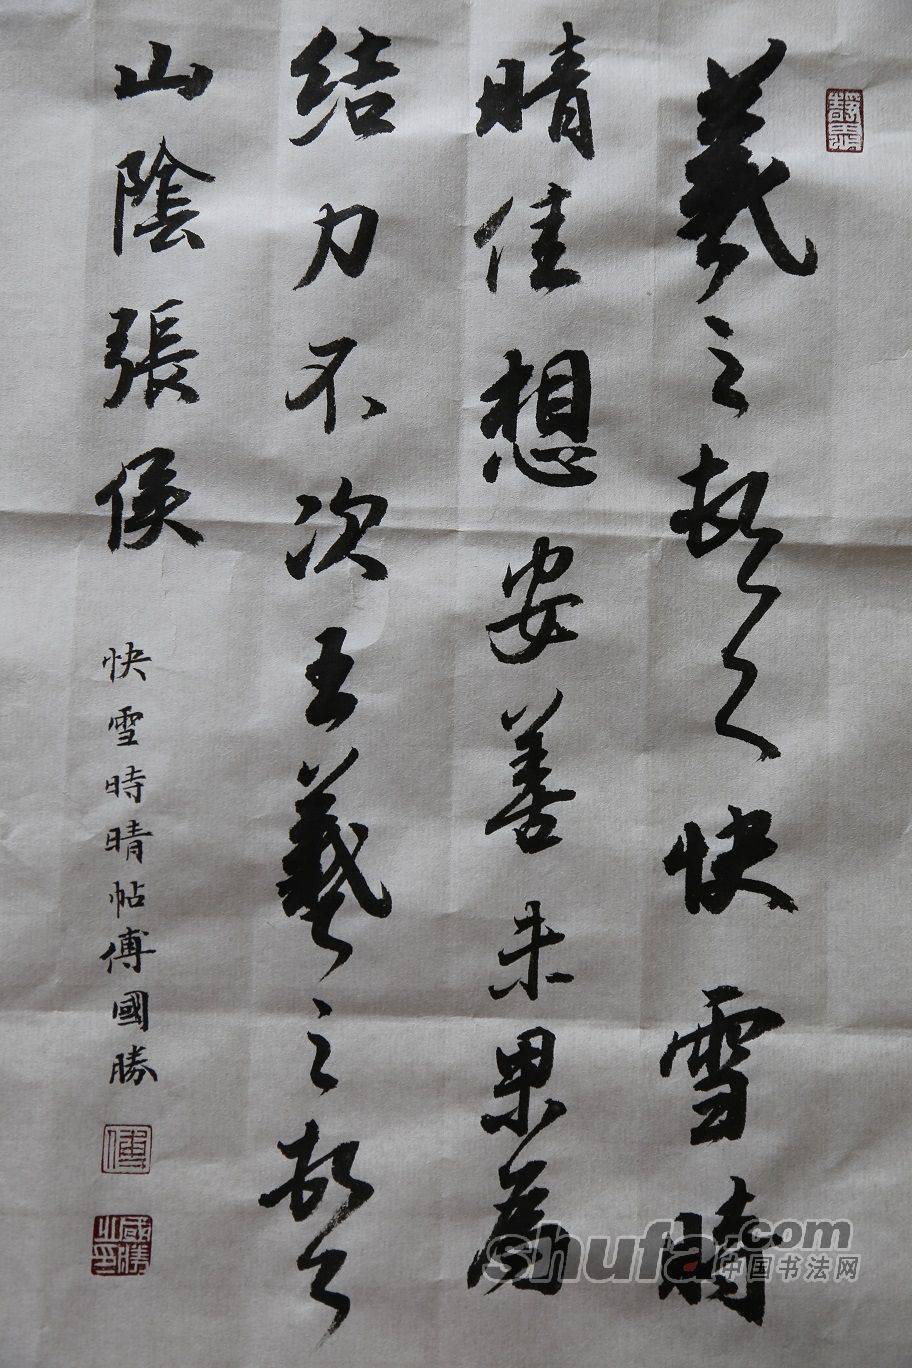 羲之頓首快雪時
晴佳想安善未果為
结力不次王羲之頓首
山陰張侯
快雪時晴帖傅國勝
傅
國勝之印
shufa.com
中国书法网